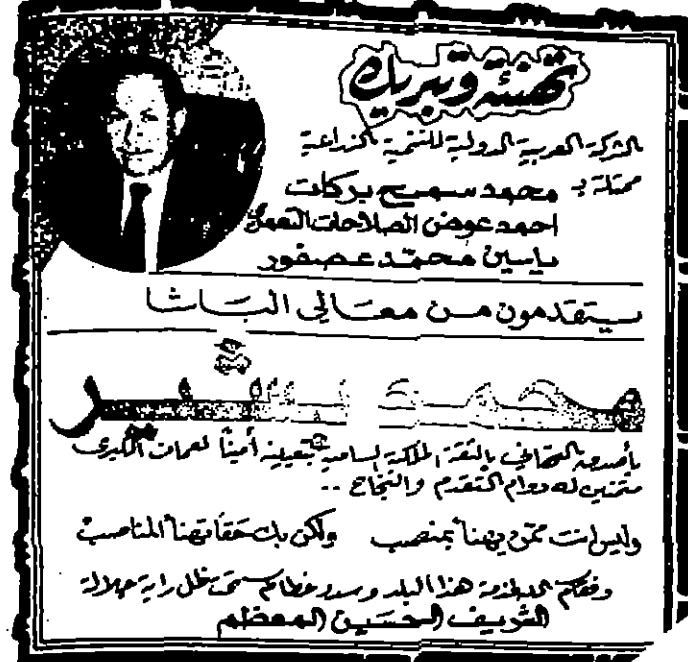 تهنئة وتبريك
الشركة العربية الدولية للتنمية الزراعية
ممثلة بـ محمد سميح بركات
احمد عوض الصلاحات النعمان
ياسين محمد عصفور
يتقدمون من معالي الباشا
محمد بشير
بأصدق التهاني بالثقة الملكية السامية بتعيينه أميناً لعمان الكبرى
متمنين له دوام التقدم والنجاح ..
وليس انت ممن يهنأ بمنصب ولكن بك حقاً تهنأ المناصب
وفقكم الله لخدمة هذا البلد وسدد خطاكم تحت ظل راية جلالة
الشريف الحسين المعظم